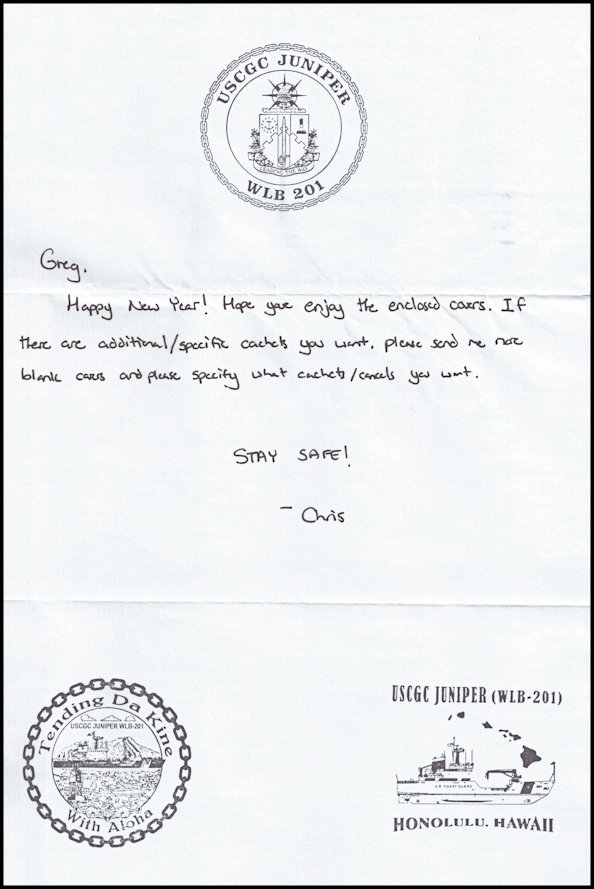 USCGC JUNIPER
LEADING THE WAY
WLB 201
Greg,
Happy New Year! Hope you enjoy the enclosed covers. If
there are additional/specific cachets you want, please send me more
blank covers and please specify what cachets/cancels you want.
STAY SAFE!
- Chris
Tending Da Kine
USCGC JUNIPER WLB-201
With Aloha
USCGC JUNIPER (WLB-201)
U.S. COAST GUARD
HONOLULU, HAWAII